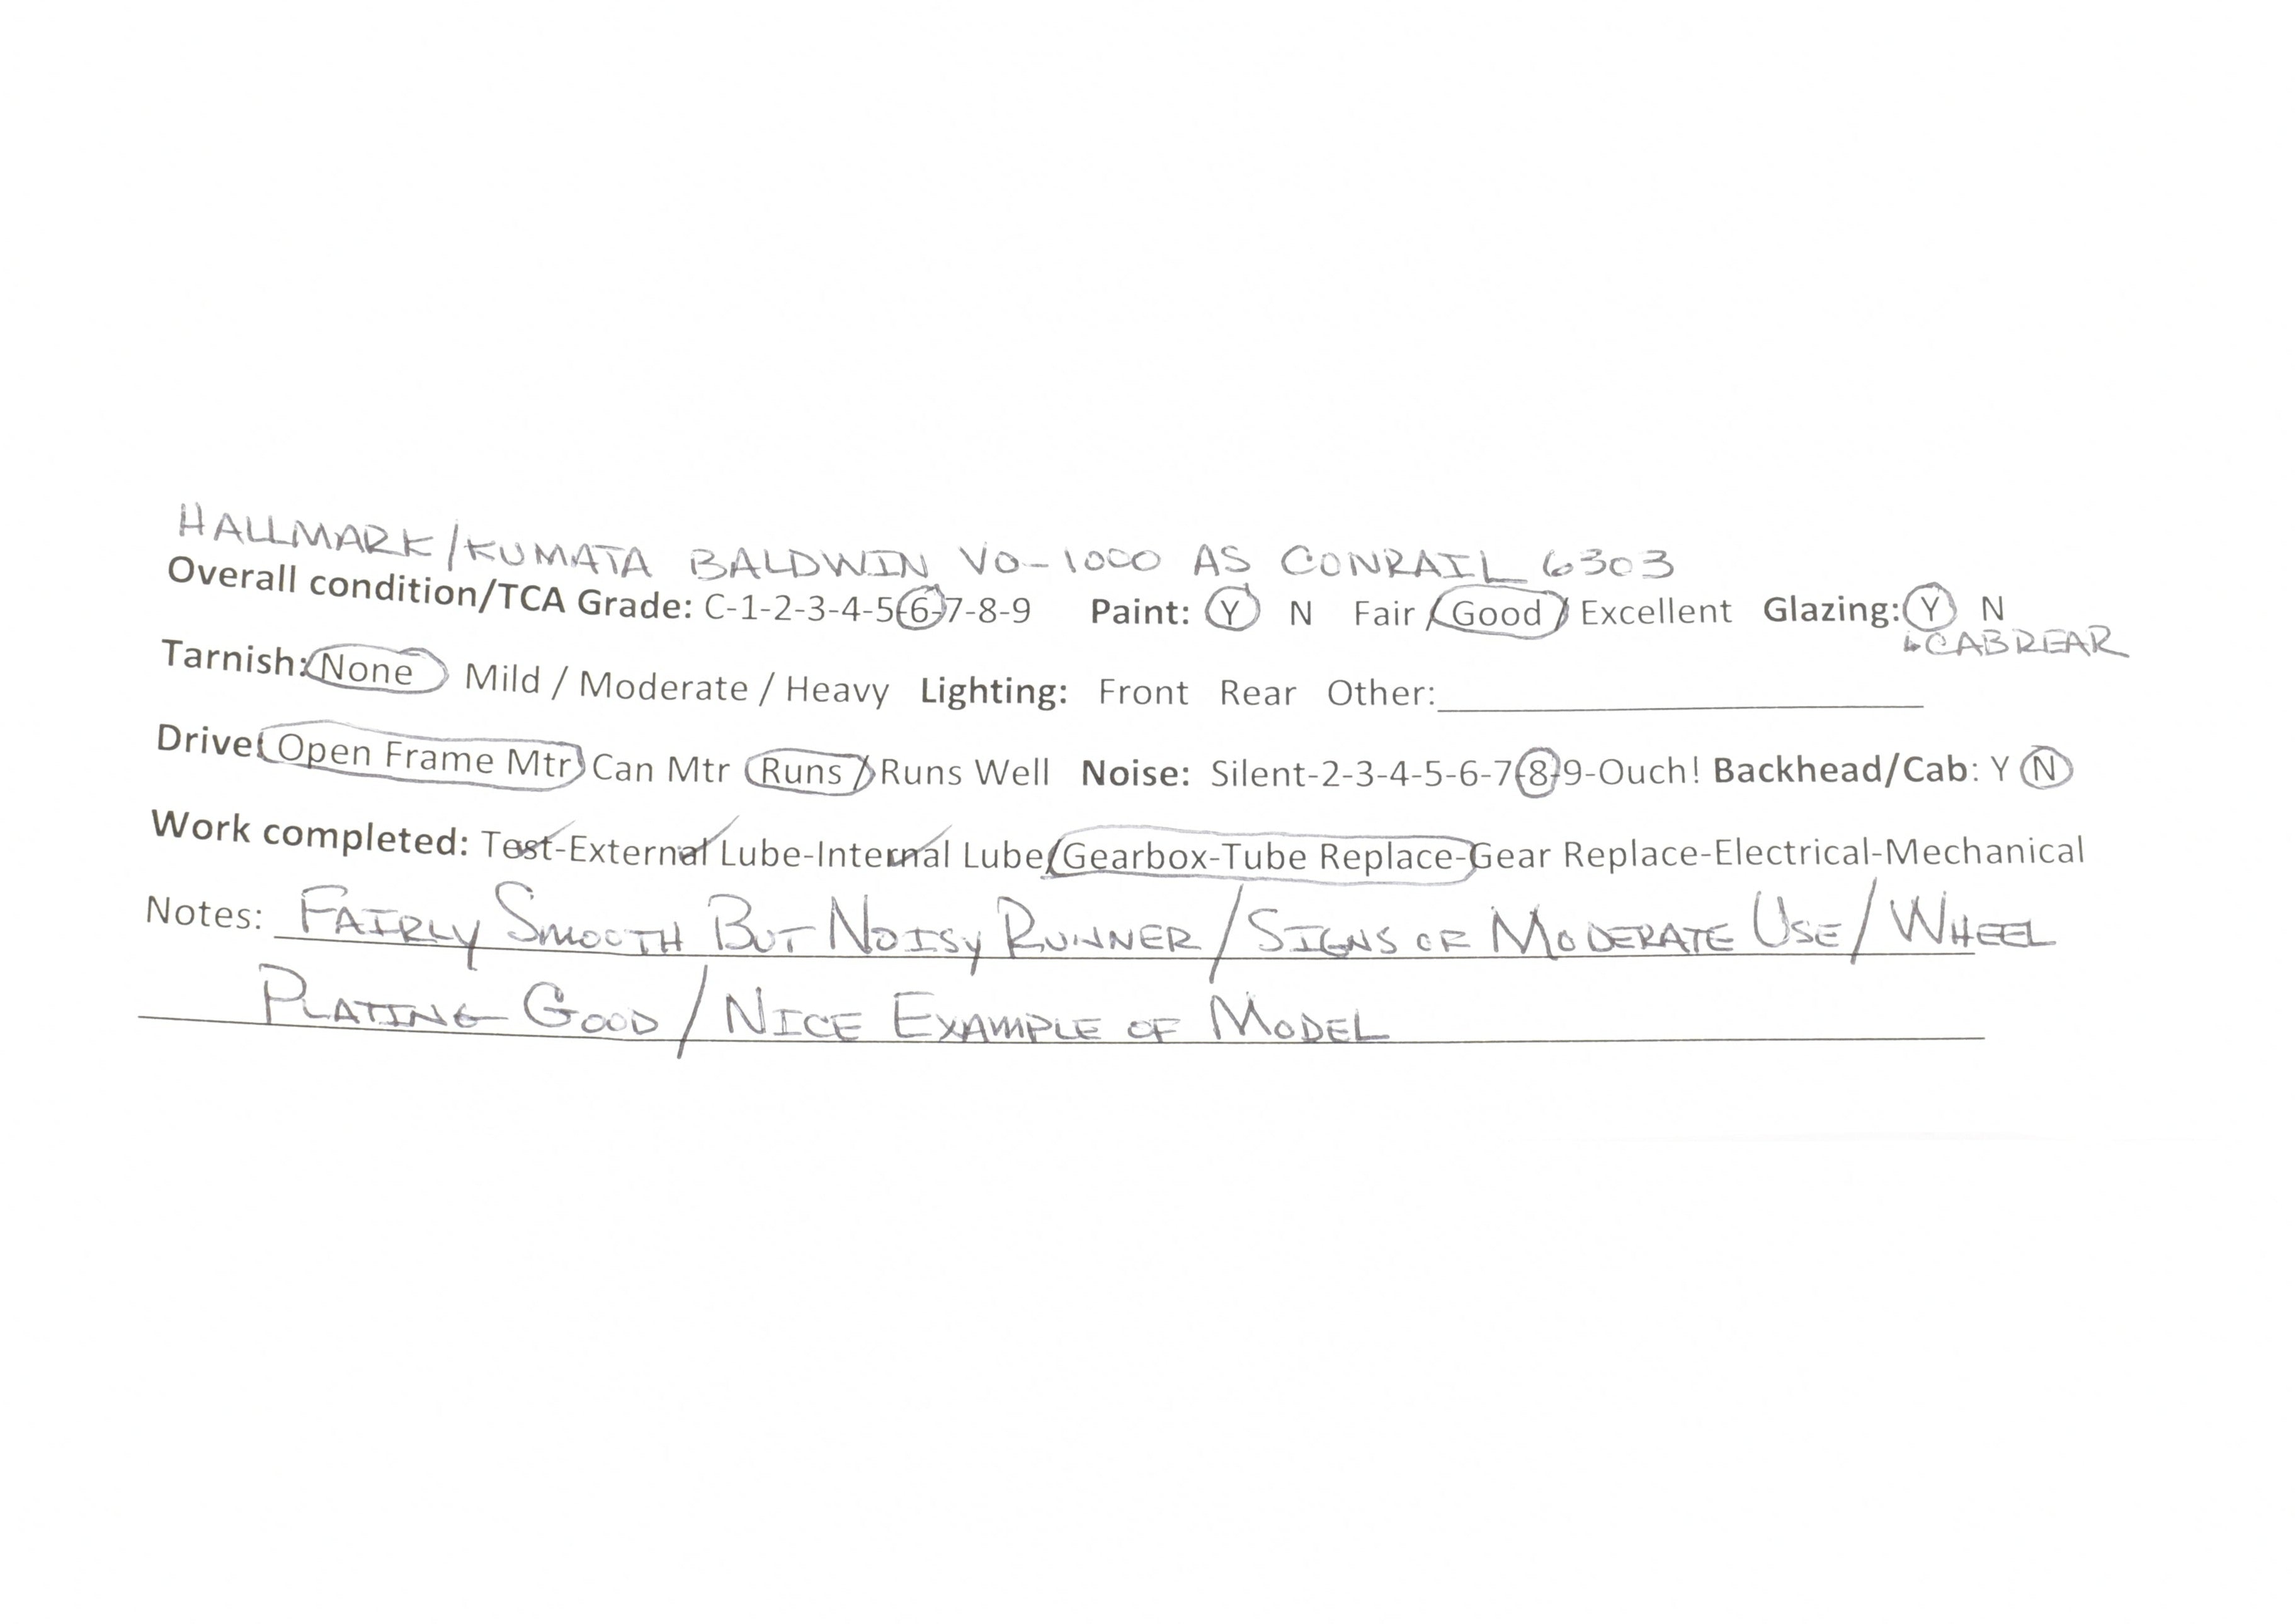 HALLMARK/KUMATA BALDWIN VO-1000 AS CONRAIL 6303
Overall condition/TCA Grade: C-1-2-3-4-5-6-7-8-9 Paint: Y N Fair / Good / Excellent Glazing: Y N
↳CAB REAR
Tarnish: None Mild / Moderate / Heavy Lighting: Front Rear Other:
Drive: Open Frame Mtr Can Mtr Runs / Runs Well Noise: Silent-2-3-4-5-6-7-8-9-Ouch! Backhead/Cab: Y N
Work completed: Test-External Lube-Internal Lube/Gearbox-Tube Replace-Gear Replace-Electrical-Mechanical
Notes: FAIRLY SMOOTH BUT NOISY RUNNER/SIGNS OF MODERATE USE/WHEEL
PLATING GOOD/NICE EXAMPLE OF MODEL